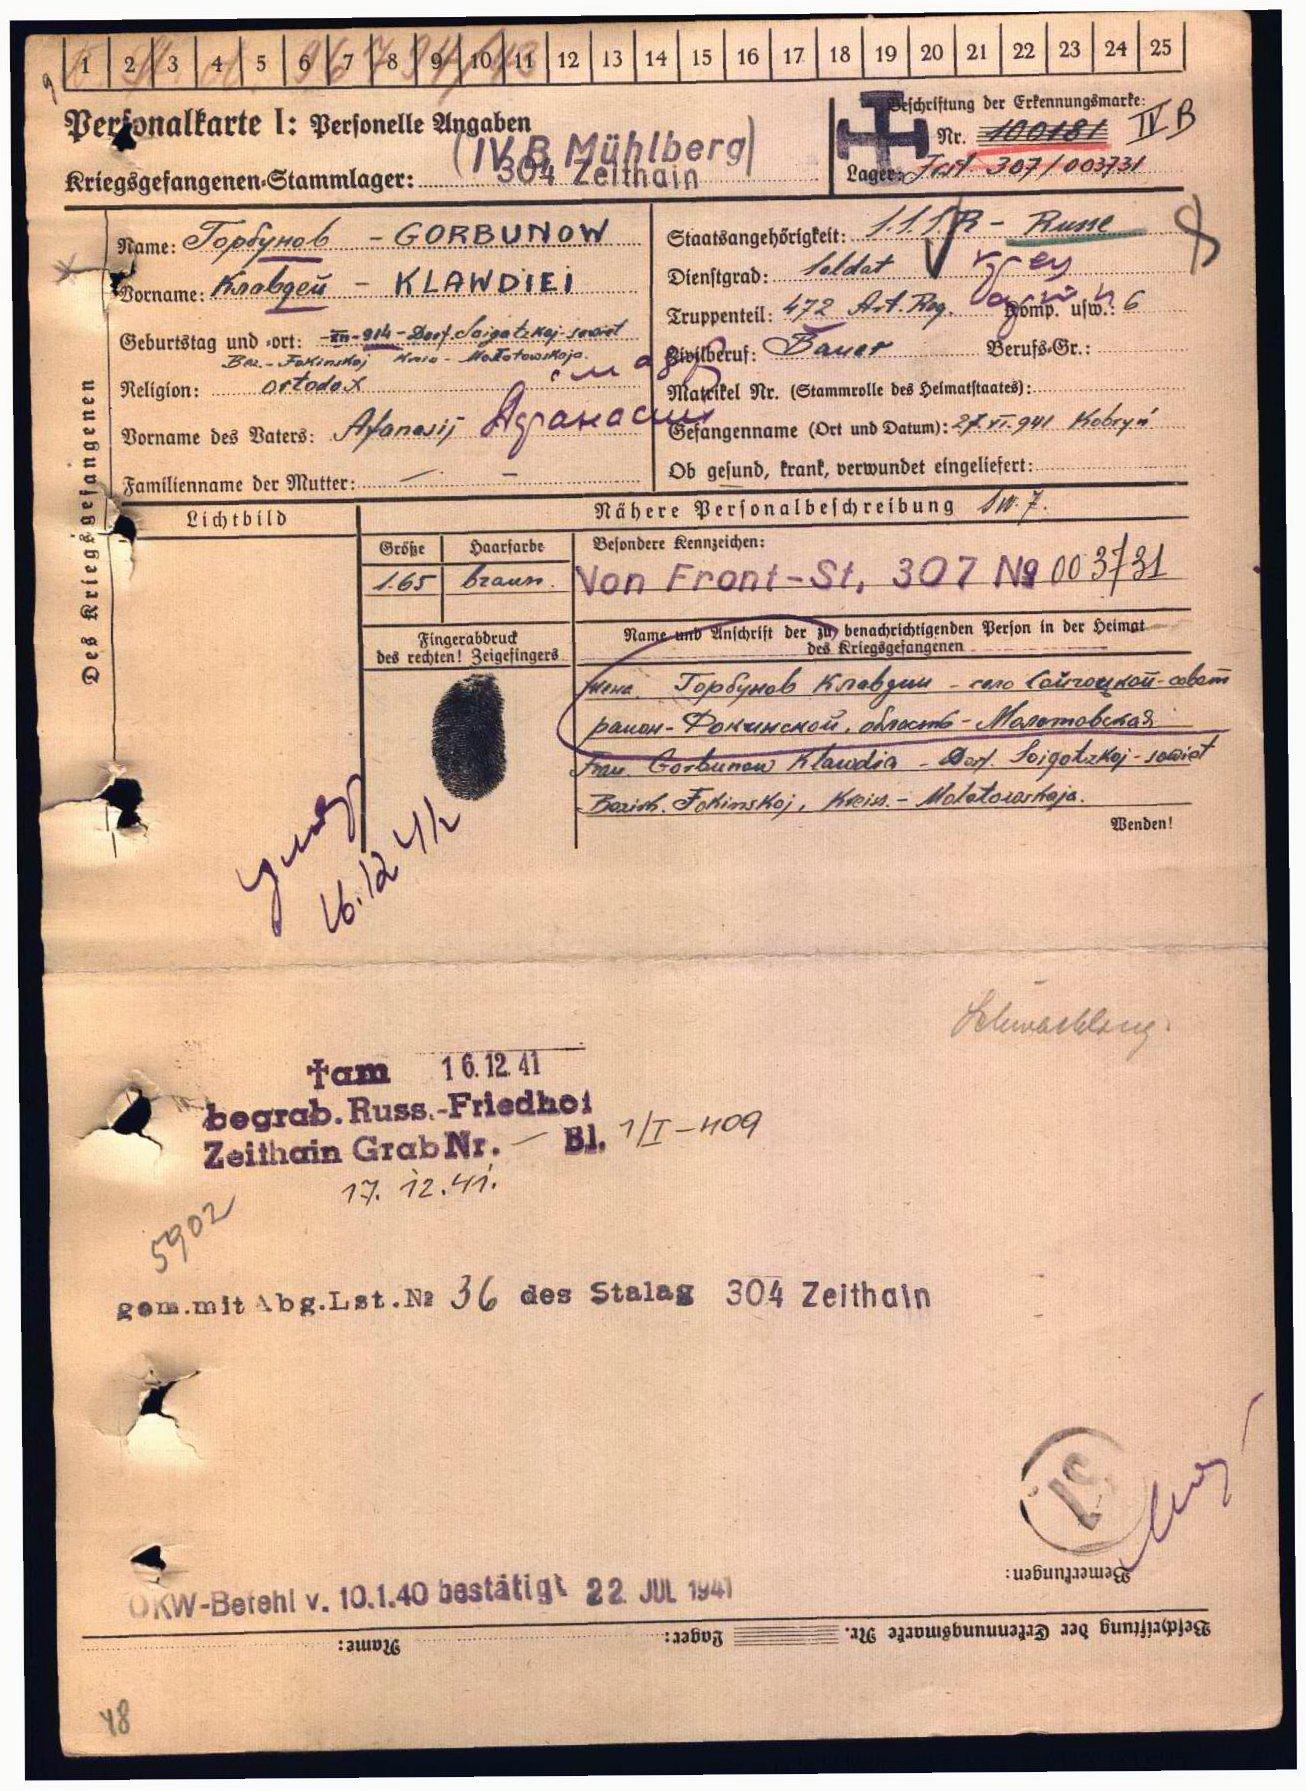 1 2 3 4 5 6 7 8 9 10 11 12 13 14 15 16 17 18 19 20 21 22 23 24 25
Personalkarte I: Personelle Angaben
Beschriftung der Erkennungsmarke:
(IV B Mühlberg)
Nr. 100181 IV B
Kriegsgefangenen-Stammlager: 304 Zeithain
Lager: 307/003731
Des Kriegsgefangenen
Name: Горбунов - GORBUNOW
Vorname: Клавдей - KLAWDIEI
Geburtstag und -ort: 914 - Dorf. Soigatzkoj-sowiet
Bez. - Fokinskoj Kreis - Molotowskoja.
Religion: ortodox
Vorname des Vaters: Afanasij Афанасий
Familienname der Mutter: — –
Staatsangehörigkeit: - Russe
Dienstgrad: Soldat
Truppenteil: 472 Art. Reg. Komp. usw.: 6
Zivilberuf: Bauer Berufs-Gr.:
Matrikel Nr. (Stammrolle des Heimatstaates):
Gefangenname (Ort und Datum): 27.VI.941 Kobryń
Ob gesund, krank, verwundet eingeliefert:
Lichtbild
Nähere Personalbeschreibung
Größe
Haarfarbe
Besondere Kennzeichen:
1.65
braun.
Von Front-St. 307 № 003731
Fingerabdruck
des rechten! Zeigefingers
Name und Anschrift der zu benachrichtigenden Person in der Heimat
des Kriegsgefangenen
жена. Горбунов Клавдии - село Сойгоцкой-совет
район - Фокинской, область - Молотовская
Frau. Gorbunow Klawdia - Dorf. Soigotzkoj-sowiet
Bezirk. Fokinskoj, Kreis. - Molotowskoja.
Wenden!
умер
16.12.41
† am 16.12.41
begrab. Russ.-Friedhof
Zeithain Grab Nr. — Bl. 1/I-409
17.12.41.
5902
gem. mit Abg.Lst.№ 36 des Stalag 304 Zeithain
Bemerkungen:
OKW-Befehl v. 10.1.40 bestätigt 22 JUL 1941
Beschriftung der Erkennungsmarke Nr. Lager: Name:
48